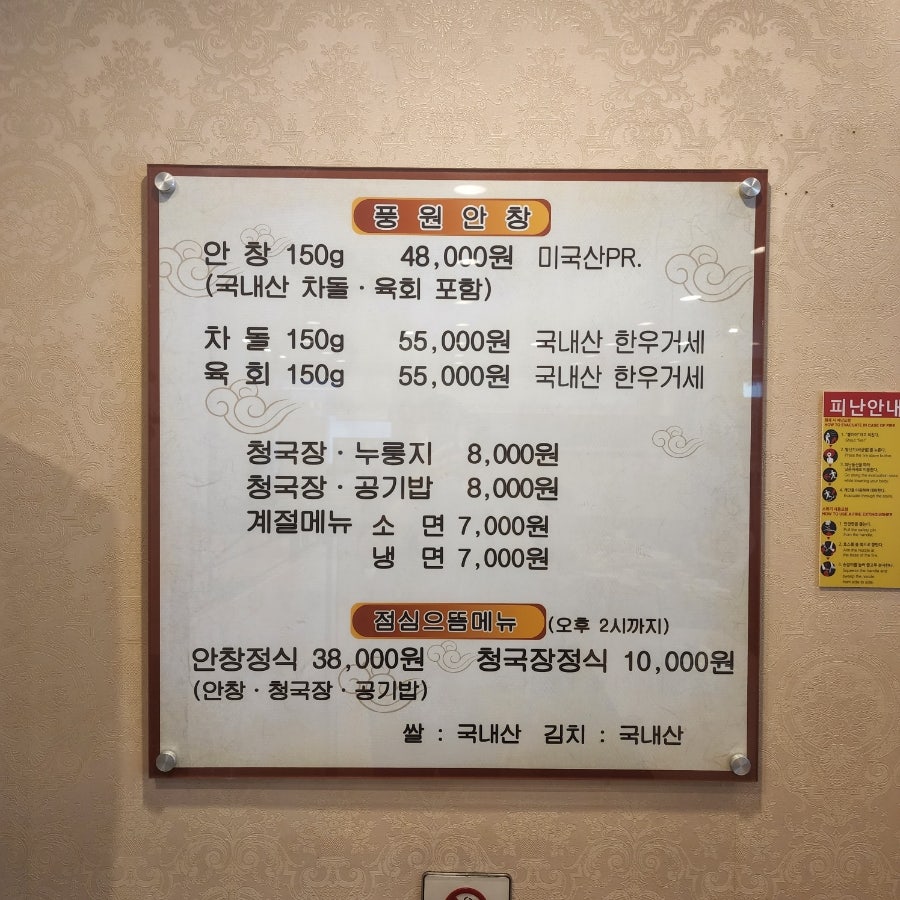 풍원안창
안 창 150g 48,000원 미국산PR.
(국내산 차돌 · 육회 포함)
차 돌 150g 55,000원 국내산 한우거세
육 회 150g 55,000원 국내산 한우거세
청국장 · 누룽지 8,000원
청국장 · 공기밥 8,000원
계절메뉴 소 면 7,000원
냉 면 7,000원
점심으뜸메뉴 (오후 2시까지)
안창정식 38,000원 청국장정식 10,000원
(안창 · 청국장 · 공기밥)
쌀 : 국내산 김치 : 국내산
피난안내
HOW TO EVACUATE IN CASE OF FIRE